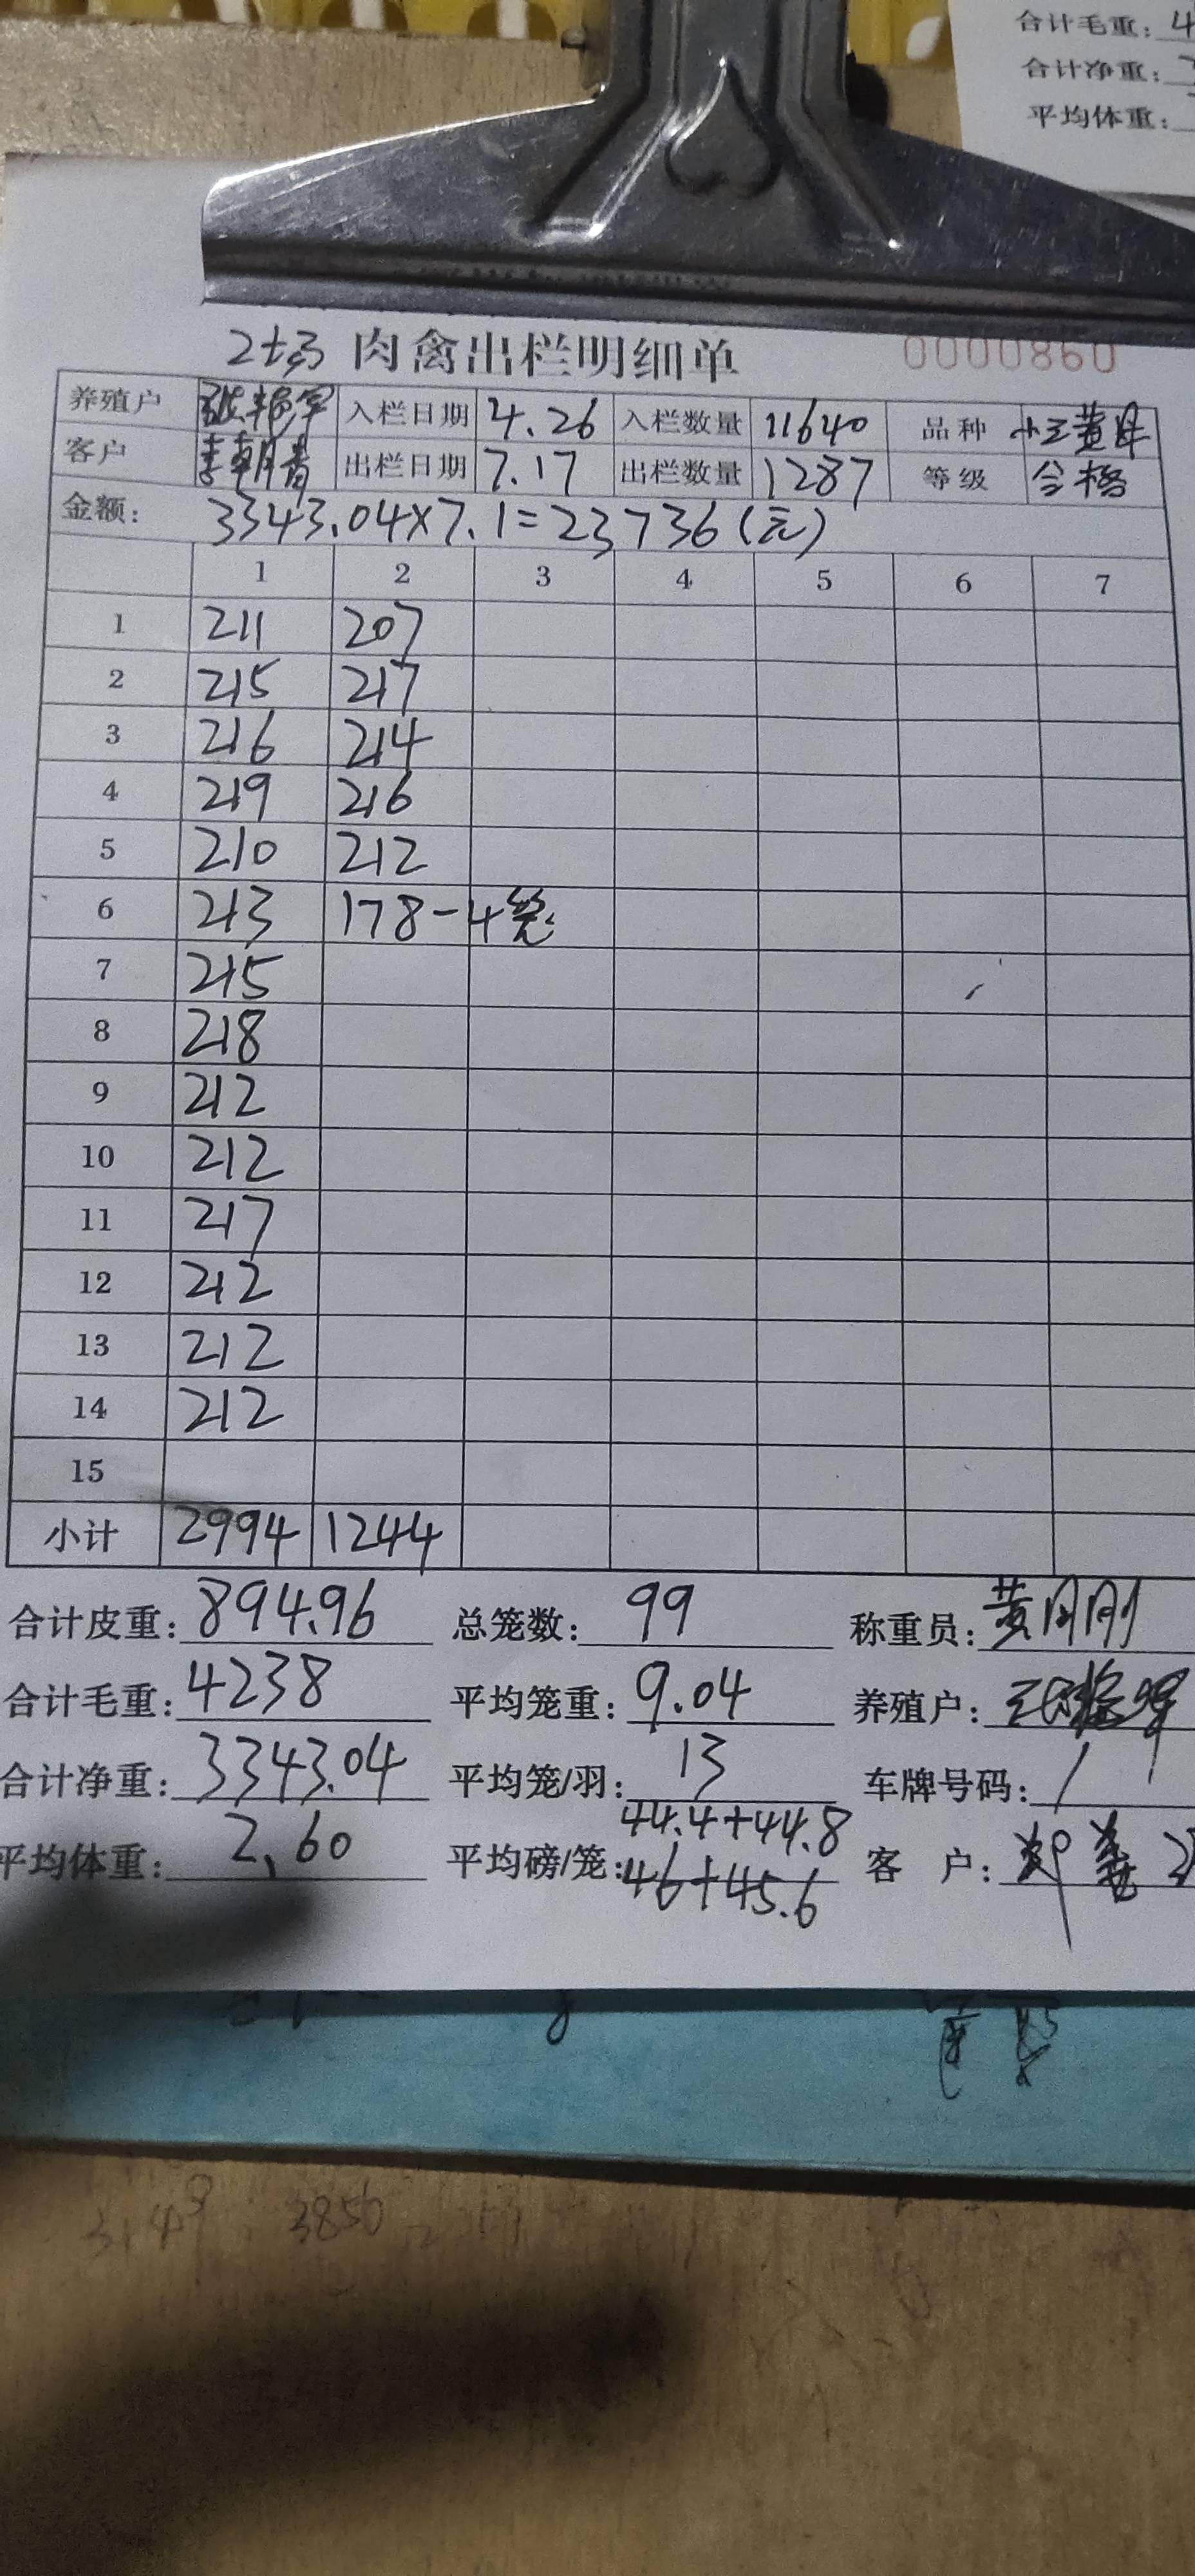 合计毛重: 4
合计净重:
平均体重:
肉禽出栏明细单 0000860
养殖户 入栏日期 4.26 入栏数量 11640 品种
客户 李朝青 出栏日期 7.17 出栏数量 1287 等级 合格
金额: 3343.04×7.1=23736(元)
1 2 3 4 5 6 7
1 211 207
2 215 217
3 216 214
4 219 216
5 210 212
6 213 178-4笼
7 215
8 218
9 212
10 212
11 217
12 212
13 212
14 212
15
小计 2994 1244
合计皮重: 894.96 总笼数: 99 称重员: 黄刚刚
合计毛重: 4238 平均笼重: 9.04 养殖户:
合计净重: 3343.04 平均笼/羽: 13 车牌号码: /
44.4+44.8
平均体重: 2.60 平均磅/笼: 46+45.6 客 户:
3850